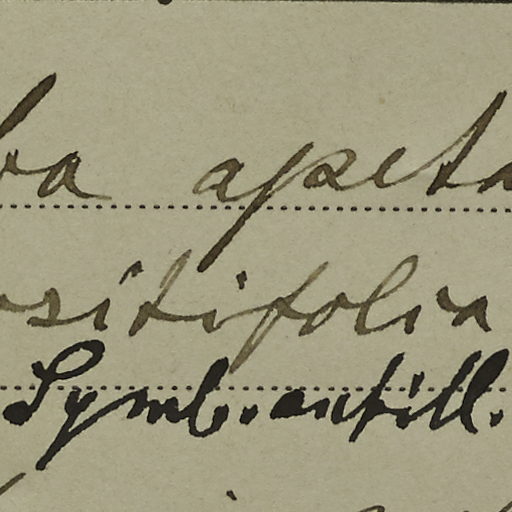 ba apeta
ositifolia
Symb. antill.